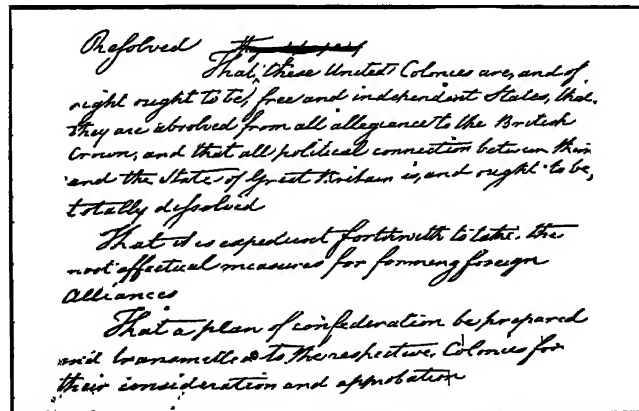 Resolved
That, these United Colonies are, and of
right ought to be, free and independent States, that
they are absolved from all allegiance to the British
Crown, and that all political connection between them
and the State of Great Britain is, and ought to be,
totally dissolved
That it is expedient forthwith to take the
most effectual measures for forming foreign
Alliances
That a plan of confederation be prepared
and transmitted to the respective Colonies for
their consideration and approbation